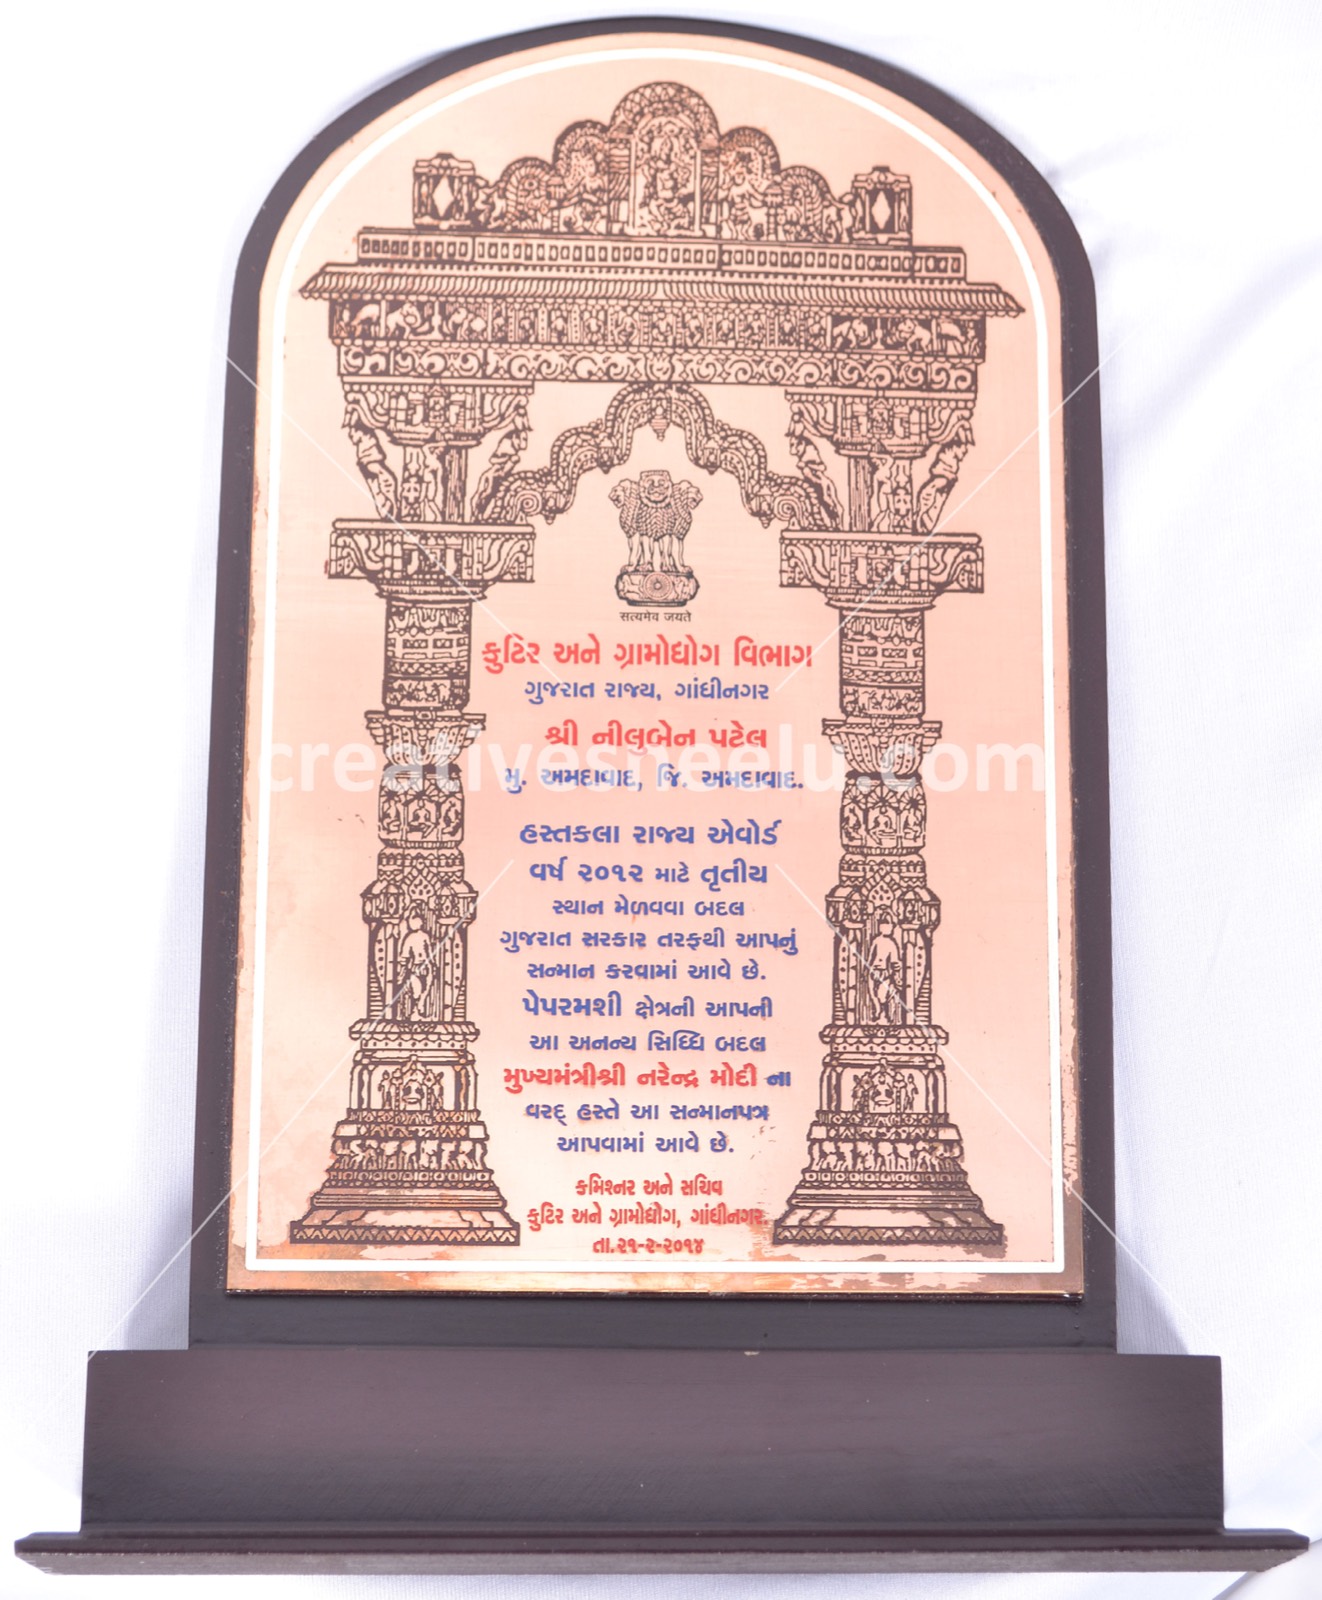 सत्यमेव जयते
કુટિર અને ગ્રામોધોગ વિભાગ
ગુજરાત રાજ્ય, ગાંધીનગર
શ્રી નીલુબેન પટેલ
creativesneelu.com
મુ. અમદાવાદ, જિ. અમદાવાદ.
હસ્તકલા રાજ્ય એવોર્ડ
વર્ષ ૨૦૧૨ માટે તૃતીય
સ્થાન મેળવવા બદલ
ગુજરાત સરકાર તરફથી આપનું
સન્માન કરવામાં આવે છે.
પેપરમશી ક્ષેત્રની આપની
આ અનન્ય સિધ્ધિ બદલ
મુખ્યમંત્રીશ્રી નરેન્દ્ર મોદી ના
વરદ્ હસ્તે આ સન્માનપત્ર
આપવામાં આવે છે.
કમિશ્નર અને સચિવ
કુટિર અને ગ્રામોધોગ, ગાંધીનગર.
તા.૨૧-૨-૨૦૧૪